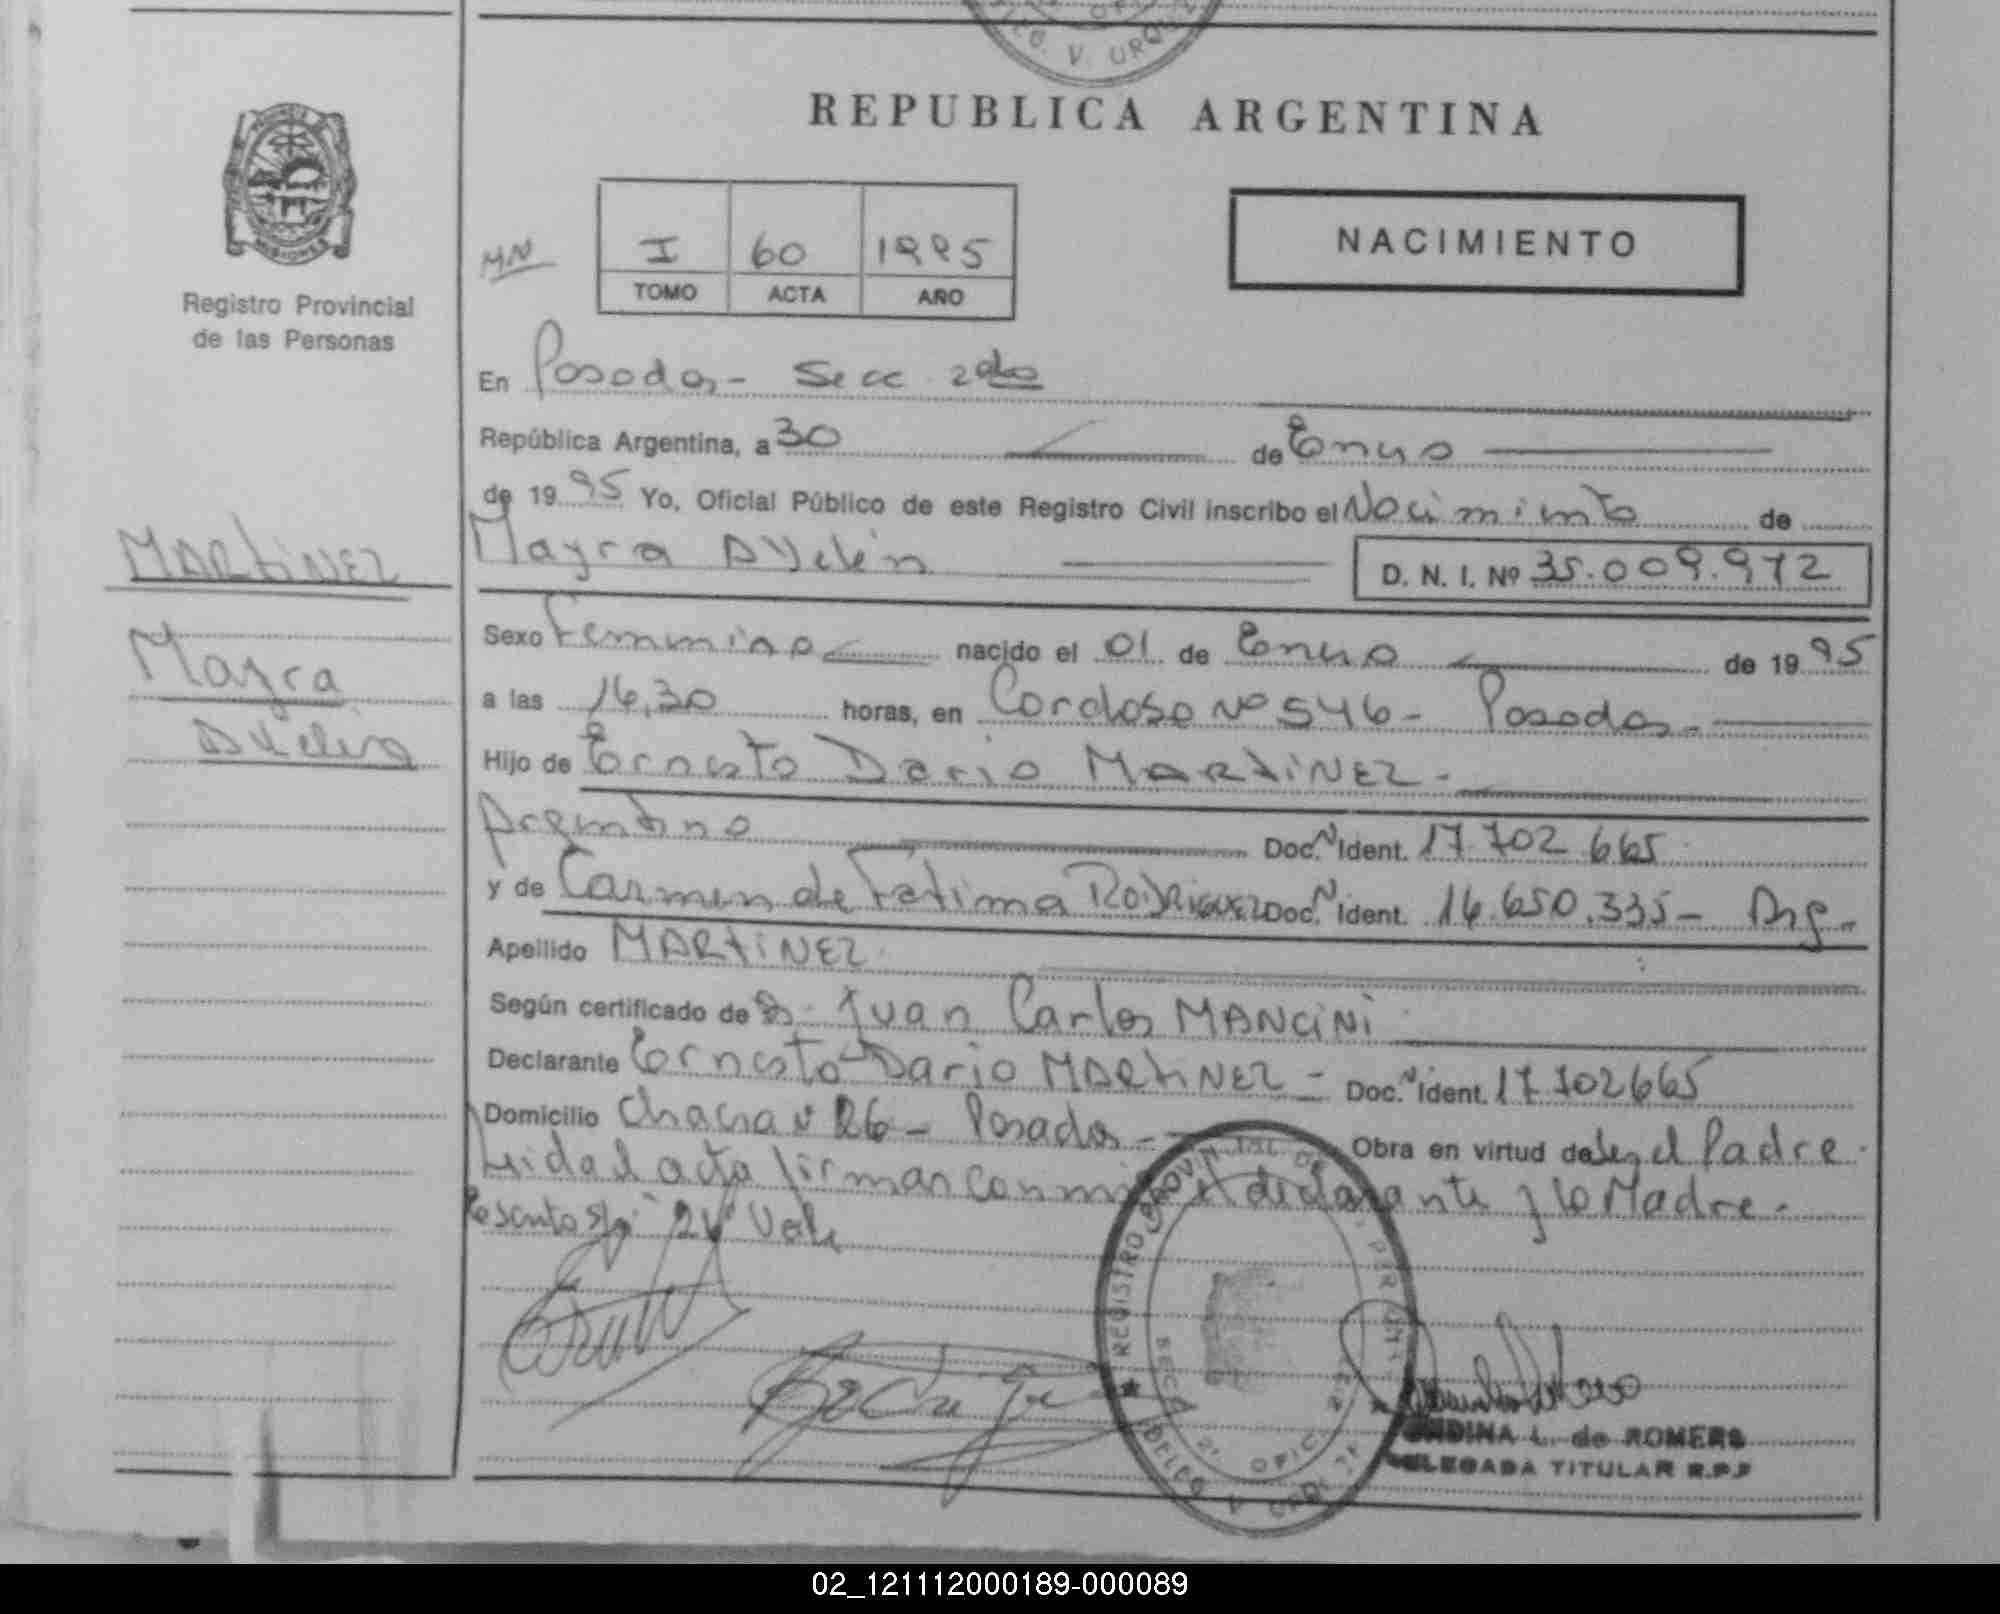 SECC. V. URQUIZA
REPUBLICA ARGENTINA
NACIMIENTO
MN
I 60 1995
TOMO ACTA AÑO
MISIONES
Registro Provincial
de las Personas
En Posadas - Secc 2da
República Argentina, a 30 de Enero
de 1995 Yo, Oficial Público de este Registro Civil inscribo el Nacimiento de
Mayra Ayelén D. N. I. Nº 35.009.972
MARTINEZ
Mayra
Ayelén
Sexo Femenino nacido el 01 de Enero de 1995
a las 14,30 horas, en Cordoso Nº 546 - Posadas.
Hijo de Ernesto Dario MARTINEZ -
Argentino Doc. N Ident. 17.702.665
y de Carmen de Fatima RODRIGUEZ Doc. N Ident. 16.650.335 - Arg.
Apellido MARTINEZ
Según certificado de Dr. Juan Carlos MANCINI
Declarante Ernesto Dario MARTINEZ - Doc. N Ident. 17702665
Domicilio Chacra Nº 26 - Posadas - Obra en virtud de ley el Padre.
Leida el acta firman conmigo el declarante y la Madre.
2 Vale
REGISTRO PROVINCIAL DE
SECCA 2ª OFIC.
DELEG. V. URQUIZA
ONDINA L. de ROMERO
DELEGADA TITULAR R.P.P
02_121112000189-000089